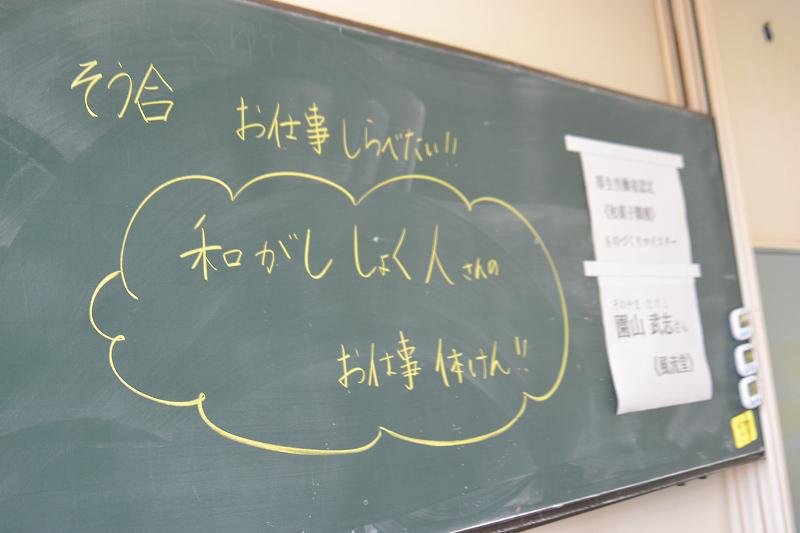 そう合
お仕事しらべたい!!
和がししょく人さんの
お仕事体けん!!
厚生労働省認定
《和菓子職種》
ものづくりマイスター
そのやま たけし
園山 武志さん
《風流堂》